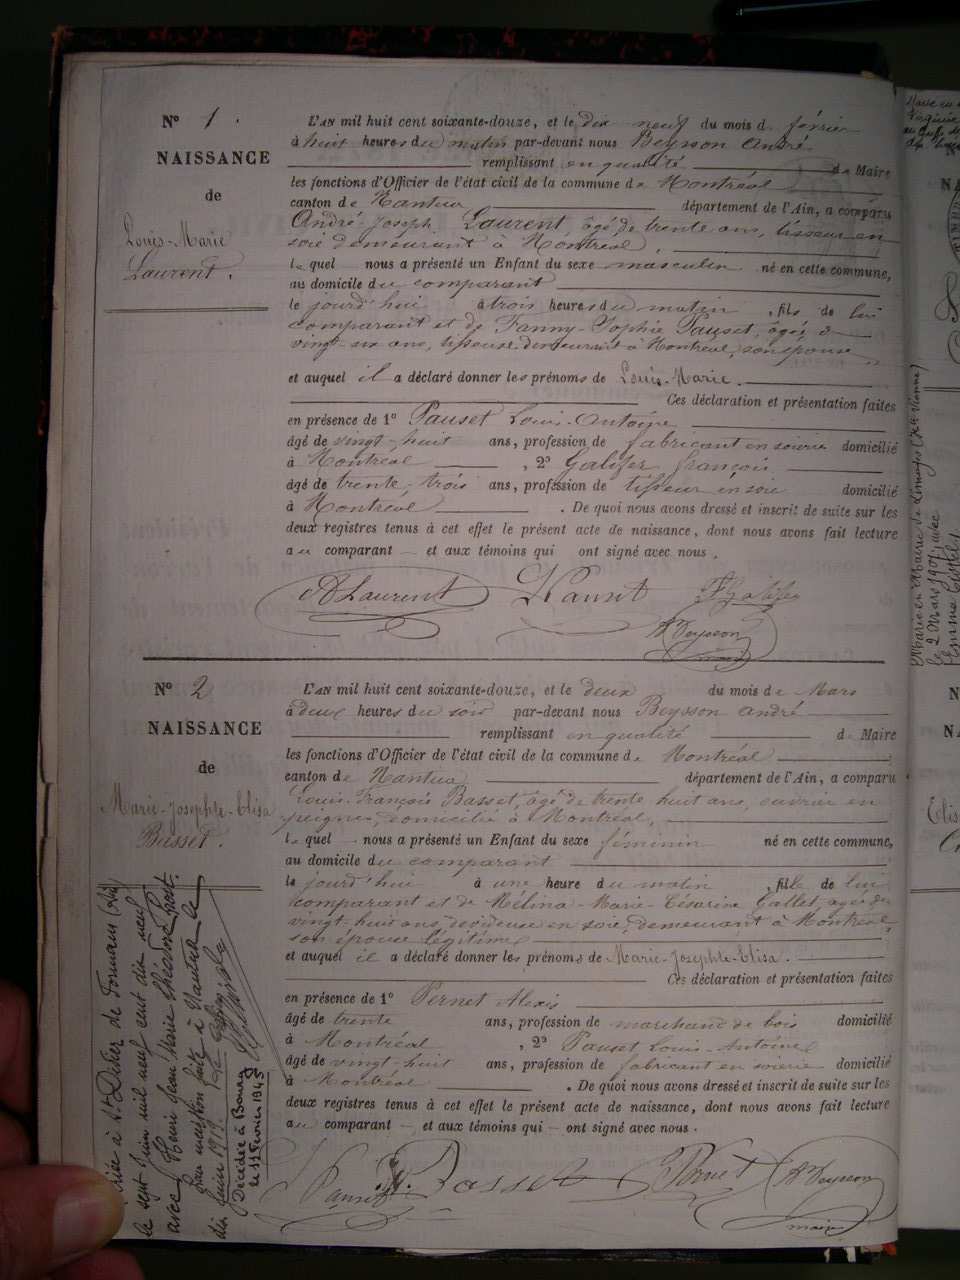 N° 1.
NAISSANCE
de
Louis-Marie
Laurent.
L'AN mil huit cent soixante-douze, et le dix neuf du mois d. février
à huit heures du matin par-devant nous Beysson André
remplissant en qualité de Maire
les fonctions d'Officier de l'état civil de la commune de Montréal
canton de Nantua département de l'Ain, a comparu
André-Joseph Laurent, âgé de trente ans, tisseur en
soie demeurant à Montréal,
lequel nous a présenté un Enfant du sexe masculin né en cette commune,
au domicile du comparant
le jourd'hui à trois heures du matin, fils de lui
comparant et de Fanny-Sophie Pauset, âgée de
vingt-six ans, tisseuse demeurant à Montréal, son épouse
et auquel il a déclaré donner les prénoms de Louis-Marie.
Ces déclaration et présentation faites
en présence de 1° Pauset Louis-Antoine
âgé de vingt-huit ans, profession de fabricant en soierie domicilié
à Montréal, 2° Galifer françois
âgé de trente-trois ans, profession de tisseur en soie domicilié
à Montréal. De quoi nous avons dressé et inscrit de suite sur les
deux registres tenus à cet effet le présent acte de naissance, dont nous avons fait lecture
au comparant — et aux témoins qui ont signé avec nous.
A Laurent L Pauset F Galifer
A Beysson
maire
N° 2
NAISSANCE
de
Marie-Josephte-Elisa
Basset.
L'AN mil huit cent soixante-douze, et le deux du mois de Mars
à deux heures du soir par-devant nous Beysson André
remplissant en qualité de Maire
les fonctions d'Officier de l'état civil de la commune de Montréal
canton de Nantua département de l'Ain, a comparu
Louis-François Basset, âgé de trente huit ans, ouvrier en
peignes, domicilié à Montréal,
lequel — nous a présenté un Enfant du sexe féminin né en cette commune,
au domicile du comparant
le jourd'hui à une heure du matin, fille de lui
comparant et de Mélina-Marie-Césarine Gallet, âgée de
vingt-huit ans, dévideuse en soie, demeurant à Montréal,
son épouse légitime
et auquel il a déclaré donner les prénoms de Marie-Josephte-Elisa.
Ces déclaration et présentation faites
en présence de 1° Pernet Alexis
âgé de trente ans, profession de marchand de bois domicilié
à Montréal, 2° Pauset Louis-Antoine
âgé de vingt-huit ans, profession de fabricant en soierie domicilié
à Montréal. De quoi nous avons dressé et inscrit de suite sur les
deux registres tenus à cet effet le présent acte de naissance, dont nous avons fait lecture
au comparant — et aux témoins qui — ont signé avec nous.
L Pauset Basset Pernet A Beysson
maire
à St Didier de Formans (Ain)
le sept Juin mil neuf cent dix neuf
avec Henri Jean Marie Théodore
mention faite à Nantua le
dix Juin 1919. Le Greffier
Décédée à Bourg
le 11 Février 1945
Marié en Mairie de Limoges (Hte Vienne)
le 2 Mars 1907, avec